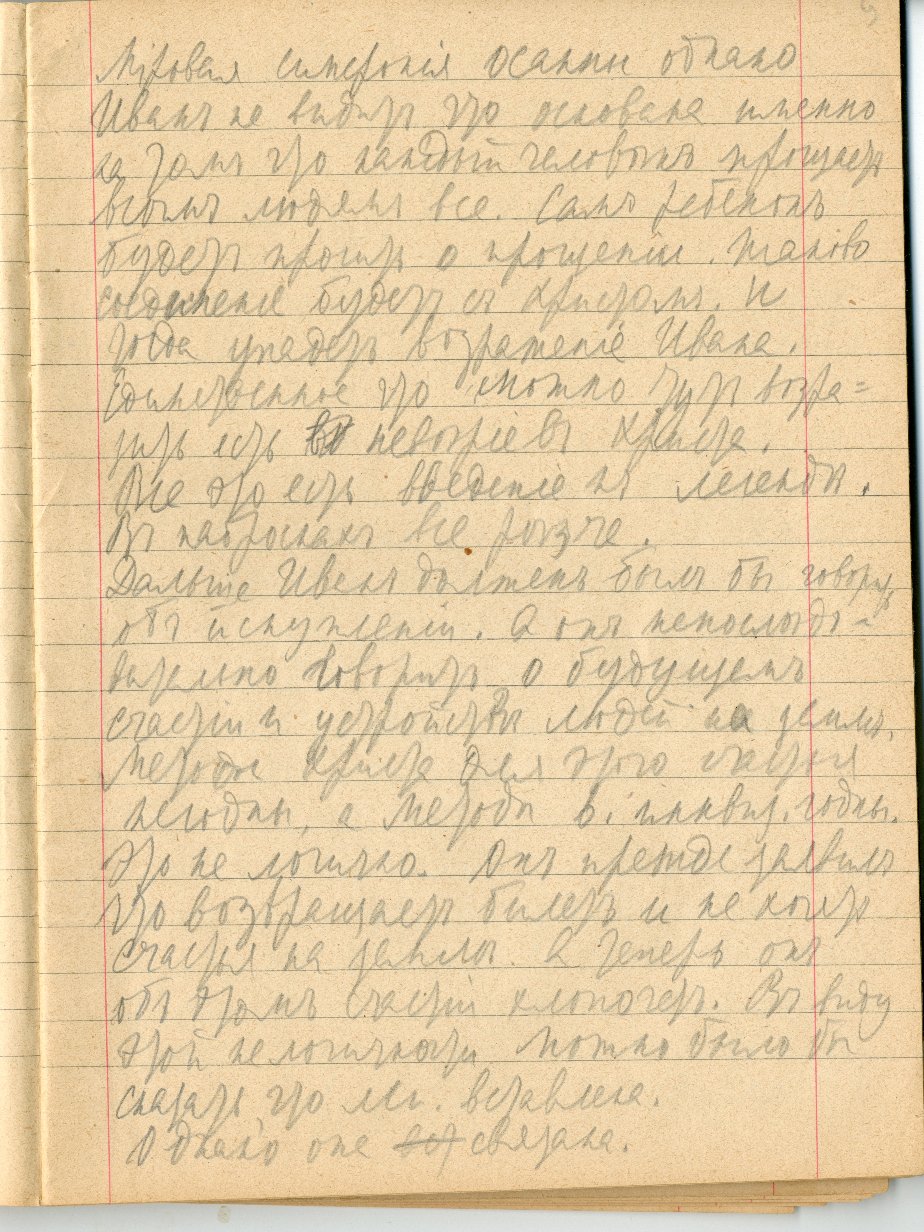 Мировая симфонія осанны однако
Иванъ не видитъ что основана именно
на томъ что каждый человѣкъ прощаетъ
всѣмъ людямъ все. Самъ ребенокъ
будетъ просить о прощеніи. Таково
соединеніе будетъ съ Христомъ. И
тогда упадетъ возраженіе Ивана.
Единственное что можно тутъ возра=
зить есть невѣріе въ Христа.
Все это есть введеніе къ легендѣ.
Въ наброскахъ все рѣзче.
Дальше Иванъ долженъ былъ бы говорить
объ искупленіи. А онъ непослѣдо-
вательно говоритъ о будущемъ
счастіи и устройствѣ людей на землѣ.
Методы Христа для этого счастья
негодны, а методы в. инквиз. годны.
Это не логично. Онъ прежде заявилъ
что возвращаетъ билетъ и не хочетъ
счастья на землѣ. А теперь онъ
объ этомъ счастіи хлопочетъ. Въ виду
этой нелогичности можно было бы
сказать что лег. вставлена.
Однако она связана.